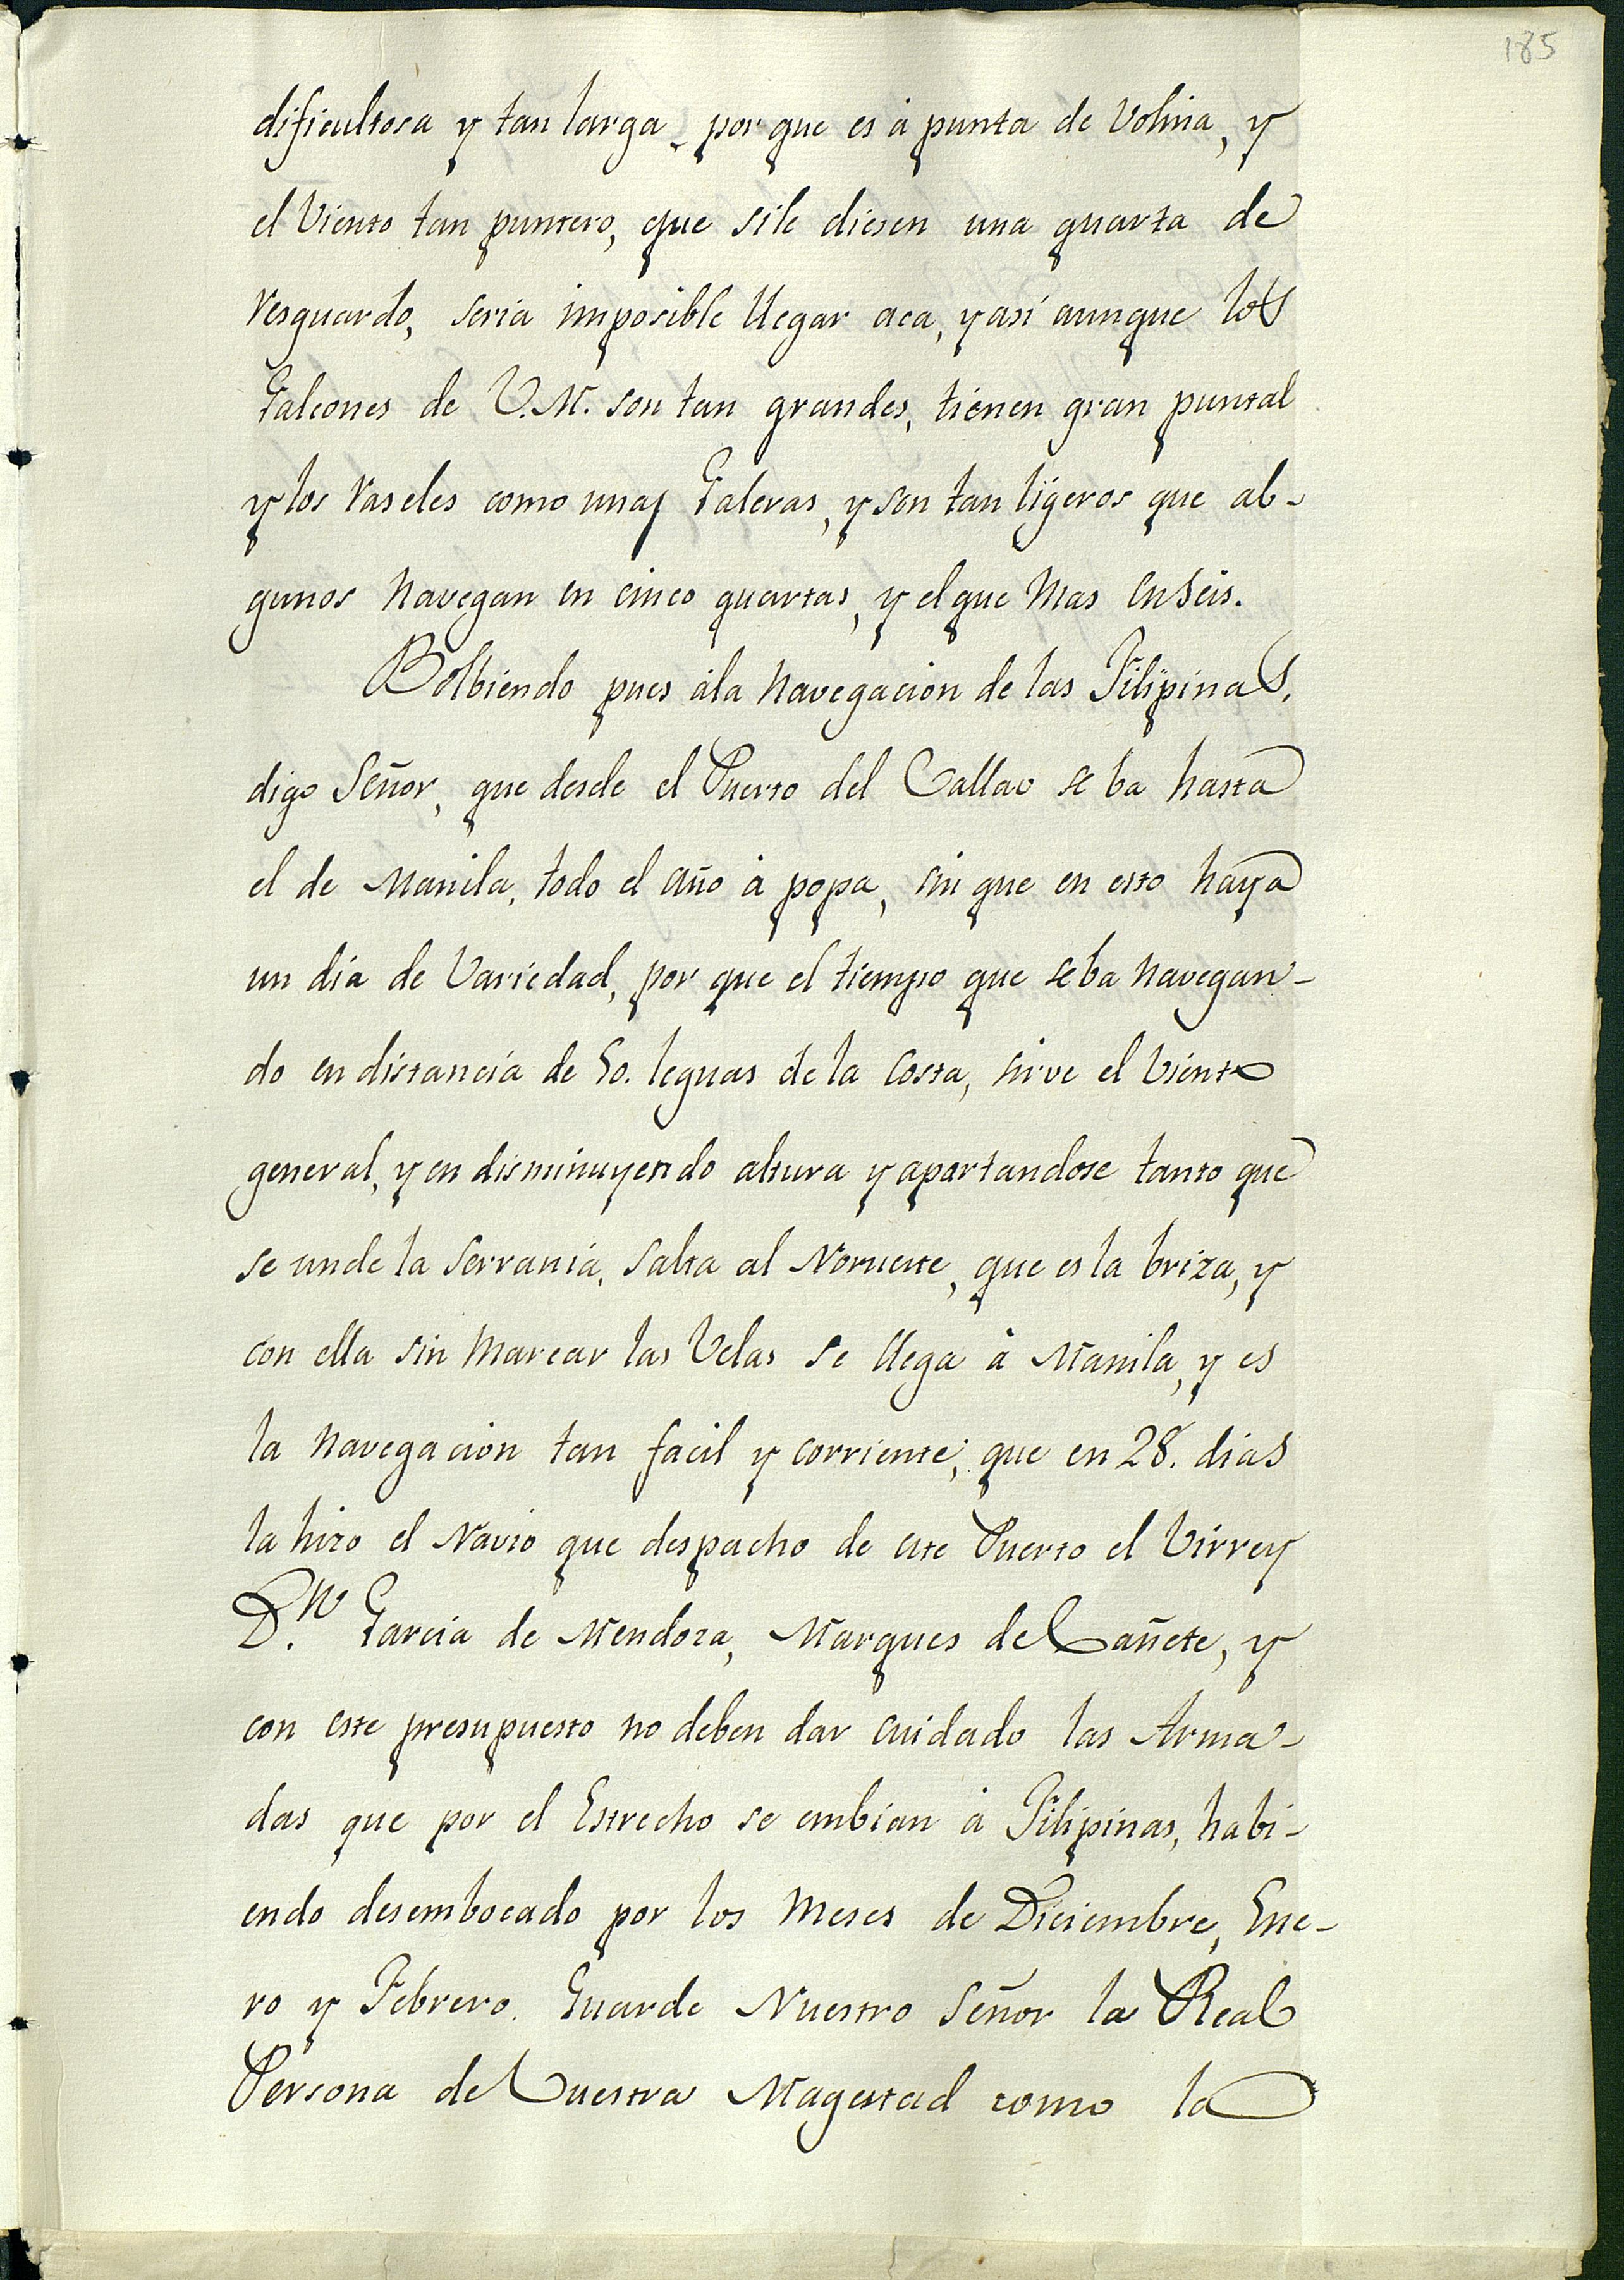 185
dificultosa y tan larga, por que es á punta de Volina, y
el Viento tan puntero, que sile diesen una quarta de
resguardo, seria imposible llegar aca, y asi aunque los
Galeones de V. M. son tan grandes, tienen gran puntal
y los Vaseles como unas Galeras, y son tan ligeros que al-
gunos navegan en cinco quartas, y el que mas en seis.
Bolbiendo pues ála navegacion de las Filipinas,
digo Señor, que desde el Puerto del Callao se ba hasta
el de Manila, todo el año á popa, sin que en esto haya
un dia de Variedad, por que el tiempo que se ba navegan-
do en distancia de 50. leguas de la Costa, sirve el Viento
general, y en disminuyendo altura y apartandose tanto que
se unde la Serrania, salta al Norueste, que es la briza, y
con ella sin marear las Velas se llega á Manila, y es
la navegacion tan facil y corriente, que en 28. dias
la hizo el Navio que despacho de este Puerto el Virrey
D.ⁿ Garcia de Mendoza, Marques de Cañete, y
con este presupuesto no deben dar cuidado las Arma-
das que por el Estrecho se embian á Filipinas, habi-
endo desembocado por los meses de Diciembre, Ene-
ro y Febrero. Guarde Nuestro Señor la Real
Persona de Vuestra Magestad como la